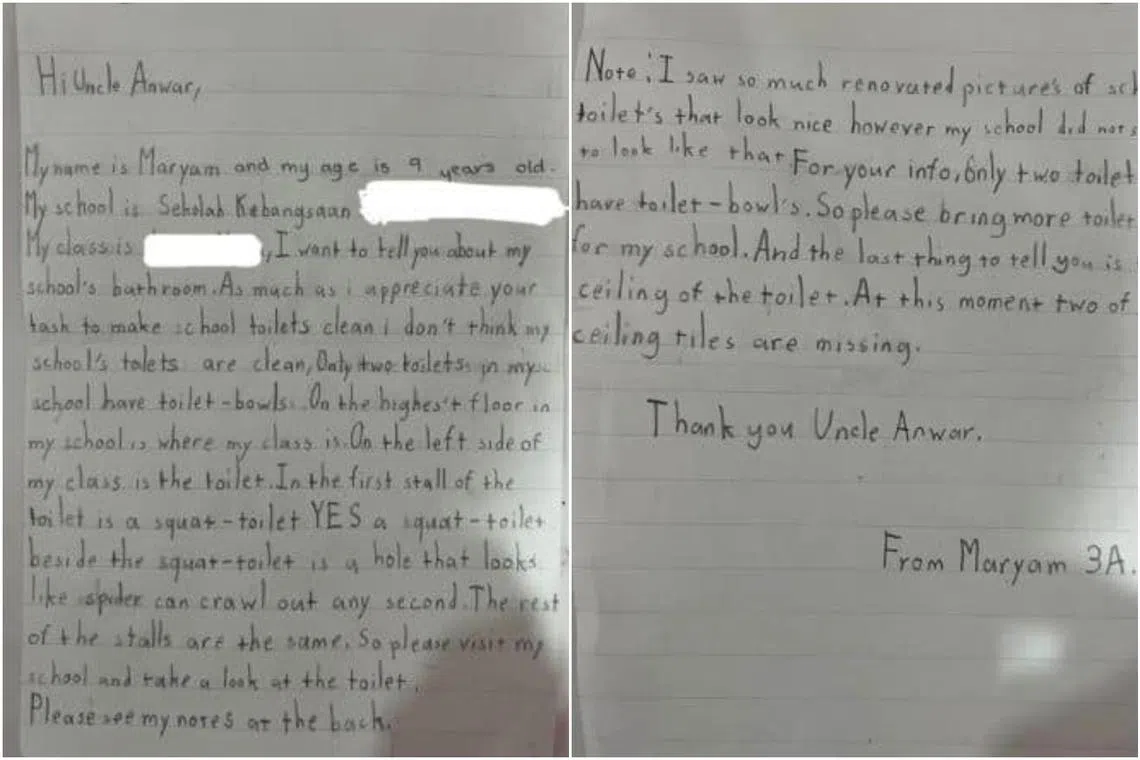 Hi Uncle Anwar,
My name is Maryam and my age is 9 years old.
My school is Sekolah Kebangsaan
My class is , I want to tell you about my
school's bathroom. As much as i appreciate your
task to make school toilets clean i don't think my
school's tolets are clean, Only two toilets in my
school have toilet-bowls. On the highes't floor in
my school is where my class is. On the left side of
my class is the toilet. In the first stall of the
toilet is a squat-toilet YES a squat-toilet
beside the squat-toilet is a hole that looks
like spider can crawl out any second. The rest
of the stalls are the same. So please visit my
school and take a look at the toilet.
Please see my notes at the back.
Note: I saw so much renovated picture's of sch
toilet's that look nice however my school did not s
to look like that For your info, Only two toilet
have toilet-bowl's. So please bring more toilet
for my school. And the last thing to tell you is
ceiling of the toilet. At this moment two of
ceiling tiles are missing.
Thank you Uncle Anwar.
From Maryam 3A.